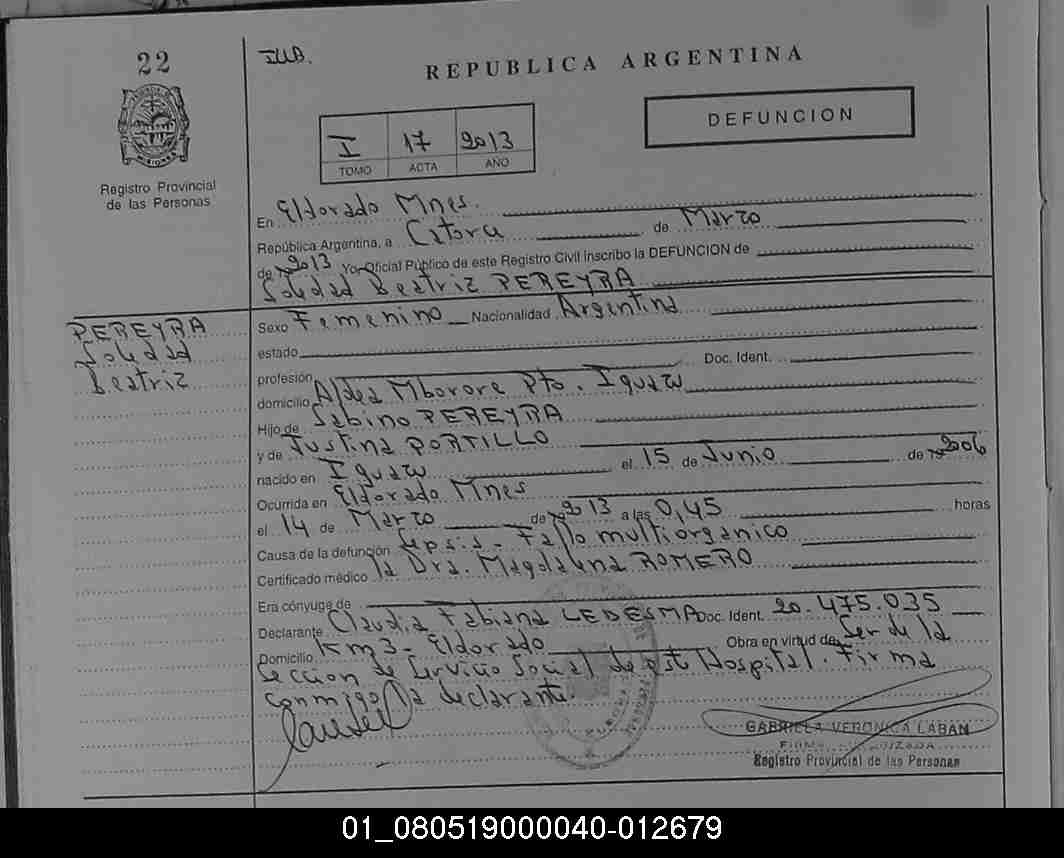 22
IUB.
REPUBLICA ARGENTINA
DEFUNCION
I 17 2013
TOMO ACTA AÑO
MISIONES
Registro Provincial
de las Personas
En Eldorado Mnes.
República Argentina, a Catorce de Marzo
de 2013 Yo, Oficial Público de este Registro Civil inscribo la DEFUNCION de
Soledad Beatriz PEREYRA
PEREYRA
Soledad
Beatriz
Sexo Femenino Nacionalidad Argentina
estado
profesión Doc. Ident.
domicilio Aldea Mborore Pto. Iguazu
Hijo de Sabino PEREYRA
y de Justina PORTILLO
nacido en Iguazu el 15 de Junio de 2006
Ocurrida en Eldorado Mnes
el 14 de Marzo de 2013 a las 0,45 horas
Causa de la defunción Sepsis - Fallo multiorganico
Certificado médico la Dra. Magdalena ROMERO
Era cónyuge de
Declarante Claudia Fabiana LEDESMA Doc. Ident. 20.475.035
Domicilio Km 3 - Eldorado Obra en virtud de Ser de la
Seccion de Servicio Social de est Hospital. Firma
conmigo la declarante.
GABRIELA VERONICA LABAN
FIRMA AUTORIZADA
Registro Provincial de las Personas
01_080519000040-012679